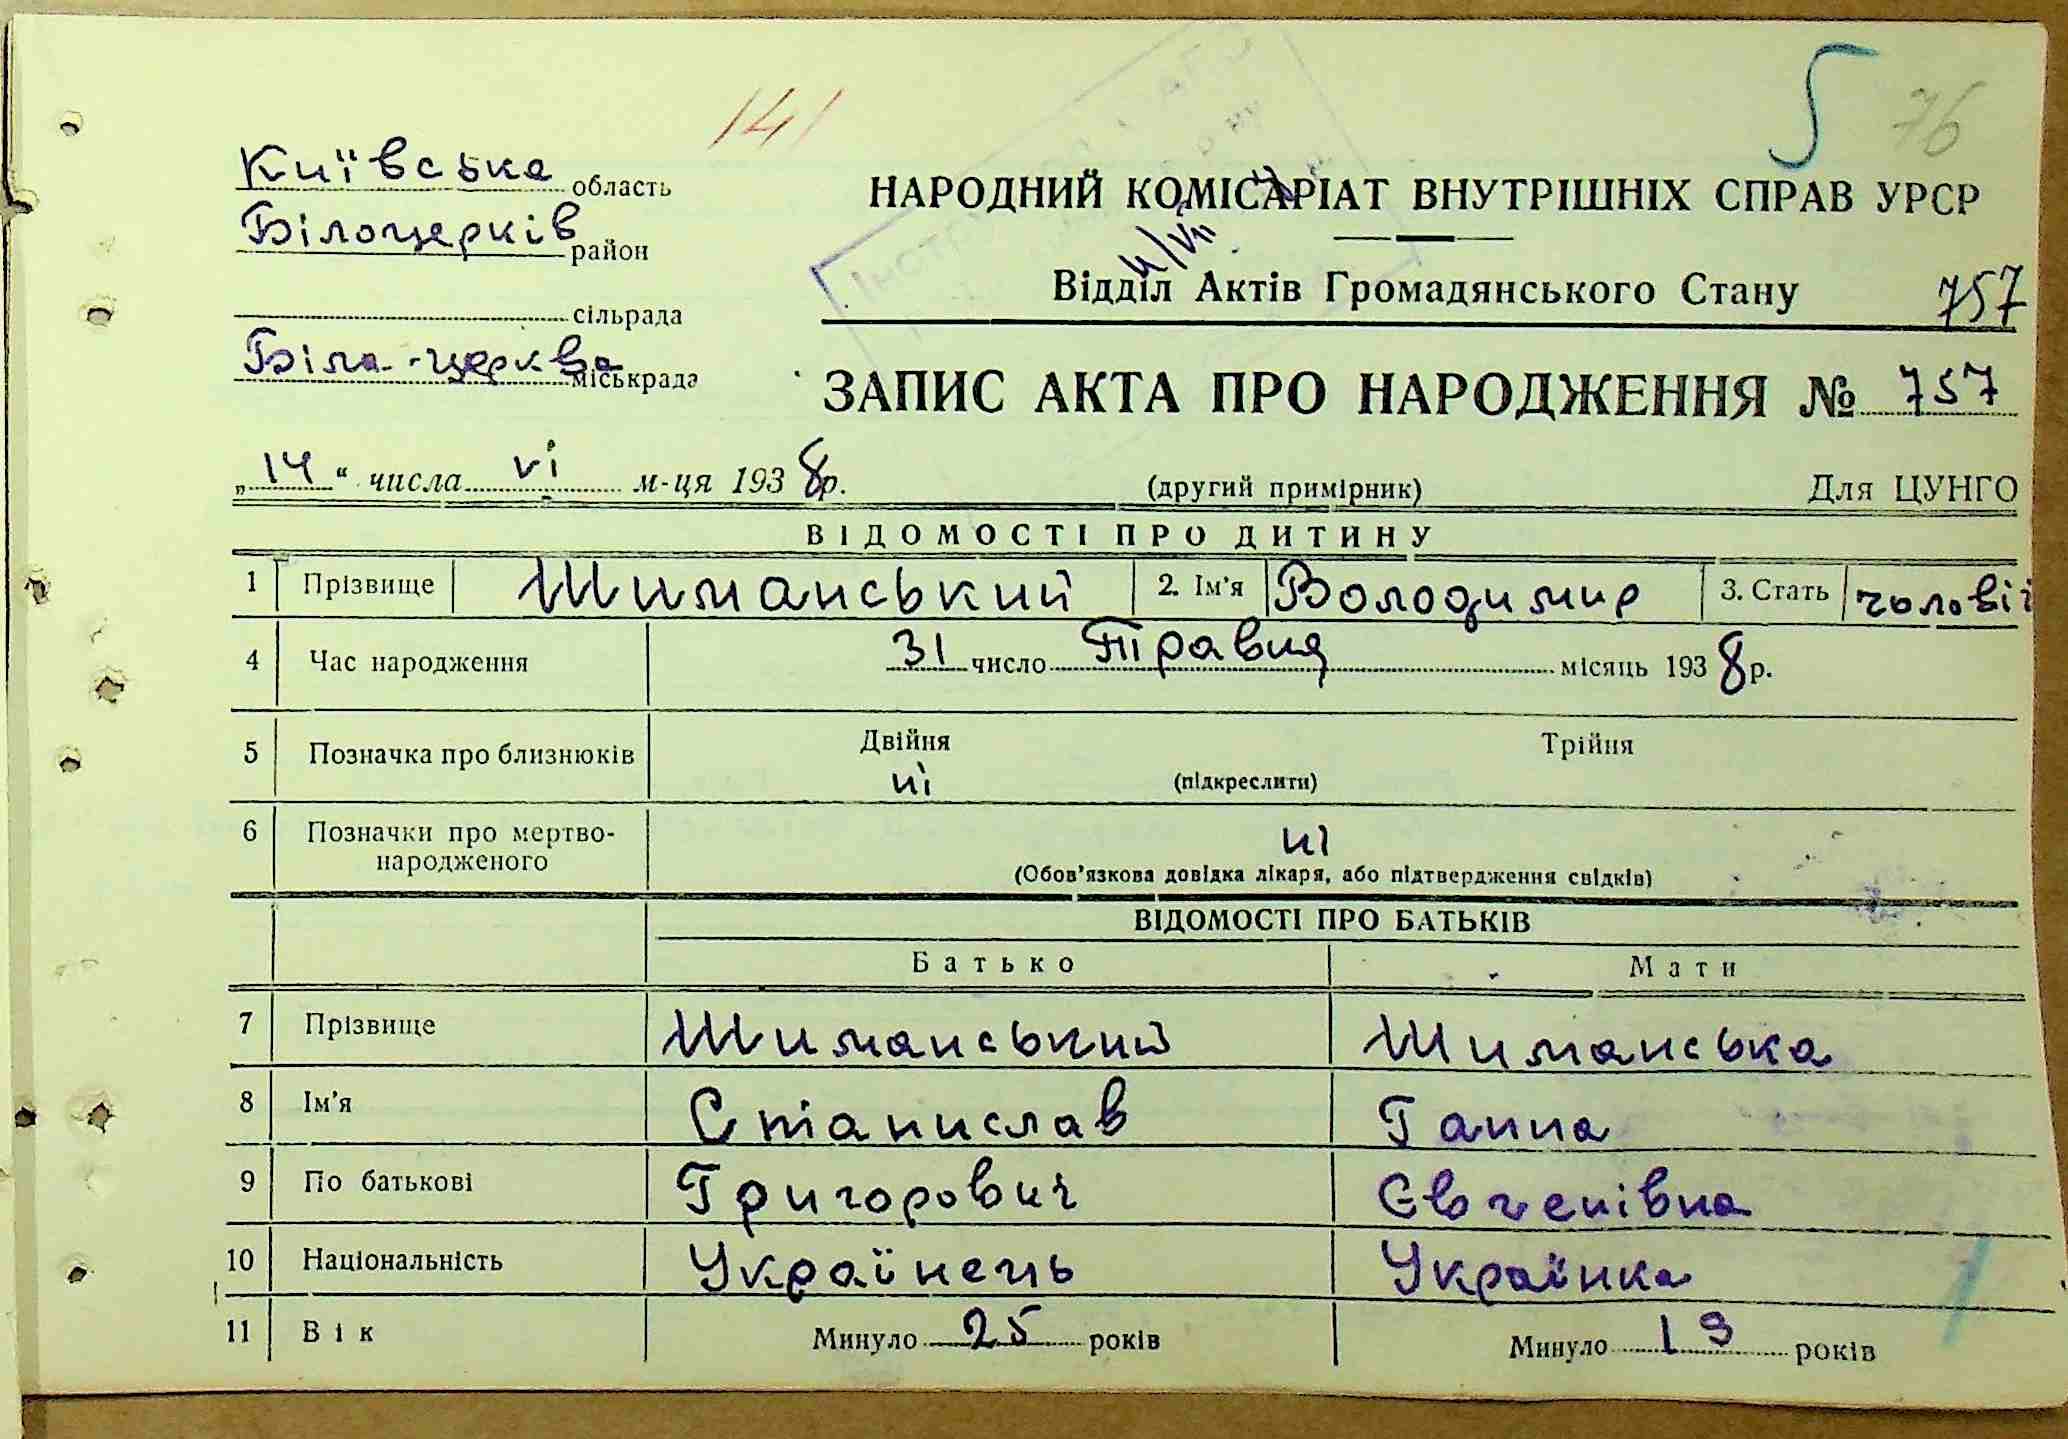 141
5 76
Київська область
Білоцерків район
сільрада
Біла-церква міськрада
НАРОДНИЙ КОМІСАРІАТ ВНУТРІШНІХ СПРАВ УРСР
Відділ Актів Громадянського Стану 757
ЗАПИС АКТА ПРО НАРОДЖЕННЯ № 757
„14“ числа VI м-ця 1938р. (другий примірник) Для ЦУНГО
ВІДОМОСТІ ПРО ДИТИНУ
1 Прізвище Шиманський 2. Ім'я Володимир 3. Стать чоловіч
4 Час народження 31 число Травня місяць 1938р.
5 Позначка про близнюків Двійня Трійня
ні (підкреслити)
6 Позначки про мертво-
народженого ні
(Обов'язкова довідка лікаря, або підтвердження свідків)
ВІДОМОСТІ ПРО БАТЬКІВ
Батько Мати
7 Прізвище Шиманський Шиманська
8 Ім'я Станислав Ганна
9 По батькові Григорович Євгенівна
10 Національність Українець Українка
11 Вік Минуло 25 років Минуло 19 років